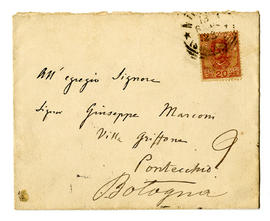 All' egregio Signore
Sigr Giuseppe Marconi
Villa Griffone
Pontecchio
Bologna
20